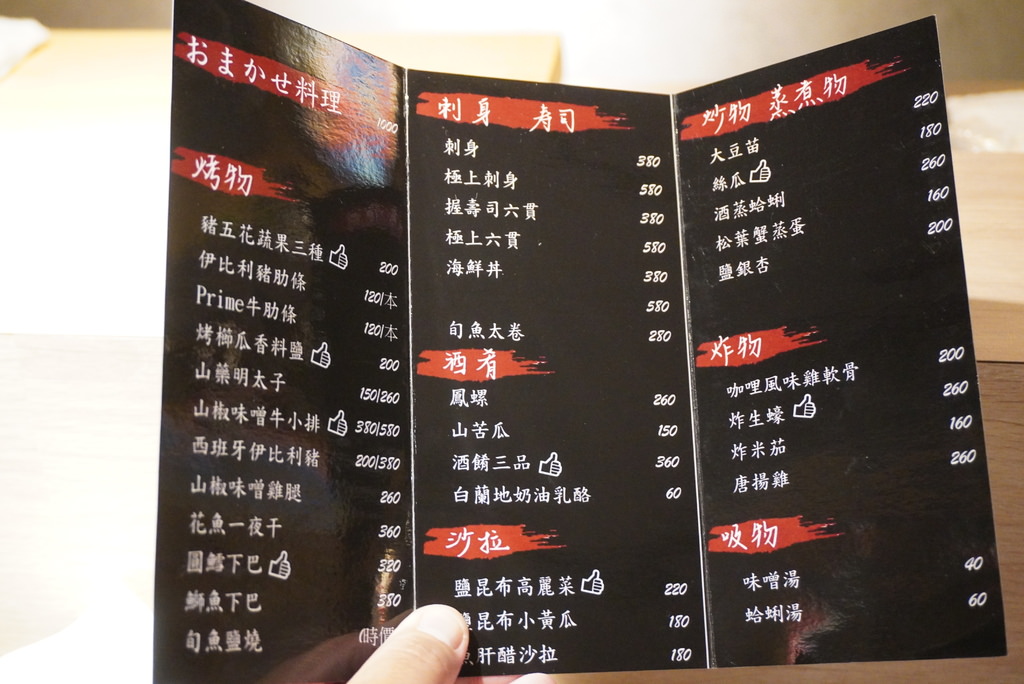 おまかせ料理 1000
烤物
豬五花蔬果三種 200
伊比利豬肋條 120/本
Prime牛肋條 120/本
烤櫛瓜香料鹽 200
山藥明太子 150/260
山椒味噌牛小排 380/580
西班牙伊比利豬 200/380
山椒味噌雞腿 260
花魚一夜干 360
圓鱈下巴 320
鰤魚下巴 380
旬魚鹽燒 (時價
刺身 寿司
刺身 380
極上刺身 580
握壽司六貫 380
極上六貫 580
海鮮丼 380
580
旬魚太卷 280
酒肴
鳳螺 260
山苦瓜 150
酒餚三品 360
白蘭地奶油乳酪 60
沙拉
鹽昆布高麗菜 220
鹽昆布小黃瓜 180
魚肝醋沙拉 180
炒物 蒸煮物
大豆苗 220
絲瓜 180
酒蒸蛤蜊 260
松葉蟹蒸蛋 160
鹽銀杏 200
炸物
咖哩風味雞軟骨 200
炸生蠔 260
炸米茄 160
唐揚雞 260
吸物
味噌湯 40
蛤蜊湯 60